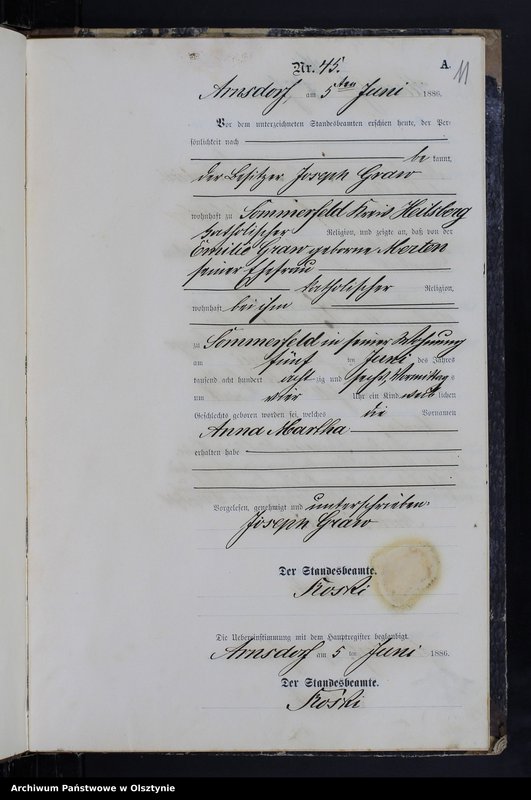 Nr. 45.
A.
11
Arnsdorf, am 5ten Juni 1886.
Vor dem unterzeichneten Standesbeamten erschien heute, der Per-
sönlichkeit nach
be kannt,
der Besitzer Joseph Graw
wohnhaft zu Sommerfeld Kreis Heilsberg
katholischer Religion, und zeigte an, daß von der
Emilie Graw geborne Merten
seiner Ehefrau
katholischer Religion,
wohnhaft bei ihm
zu Sommerfeld in seiner Wohnung
am fünf ten Juni des Jahres
tausend acht hundert acht zig und sechs, Vormittag s
um vier Uhr ein Kind weib lichen
Geschlechts geboren worden sei, welches die Vornamen
Anna Martha
erhalten habe
Vorgelesen, genehmigt und unterschrieben.
Joseph Graw
Der Standesbeamte.
Roski
Die Uebereinstimmung mit dem Hauptregister beglaubigt.
Arnsdorf am 5 ten Juni 1886.
Der Standesbeamte.
Roski
Archiwum Państwowe w Olsztynie